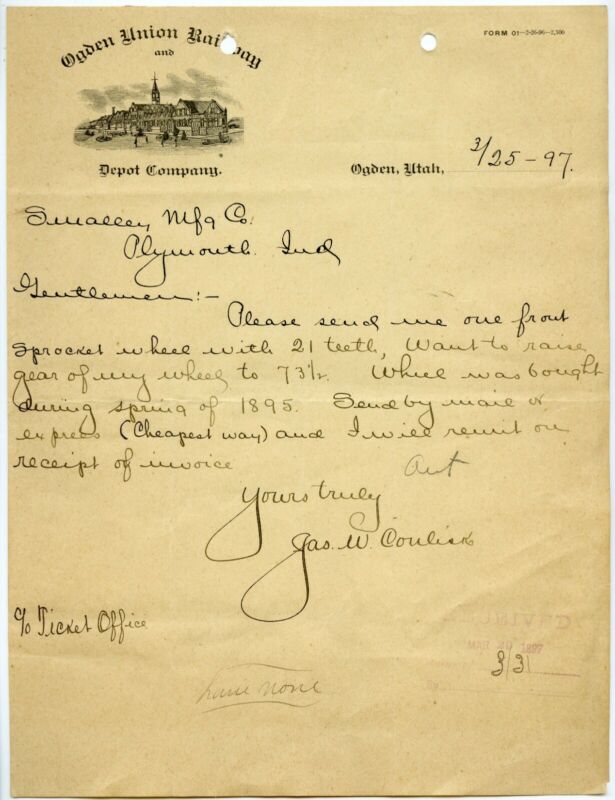 Ogden Union Railway
and
Depot Company.
FORM 01—2-26-96—2,500
Ogden, Utah, 3/25-97.
Smalley Mfg Co.
Plymouth Ind
Gentlemen:-
Please send me one front
sprocket wheel with 21 teeth, Want to raise
gear of my wheel to 73½. Wheel was bought
during spring of 1895. Send by mail or
express (Cheapest way) and I will remit on
receipt of invoice
Yours truly
Jas. W.
c/o Ticket Office
MAR 1897
3/31
have none